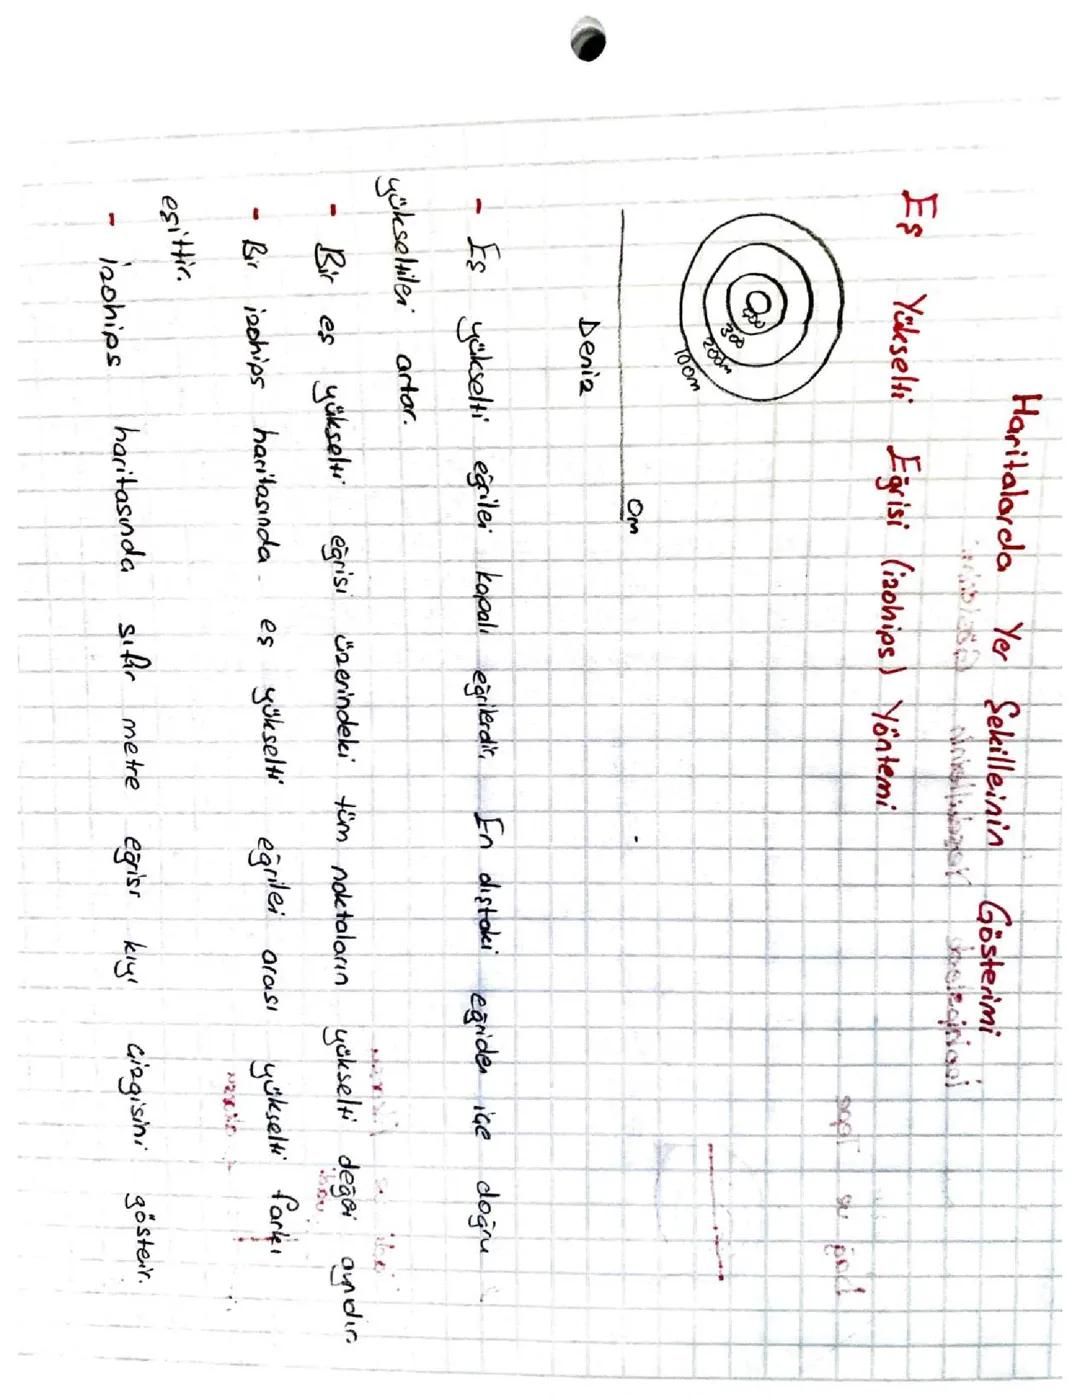 Haritalarda Yer Şekilleinin Gösterimi
Eş Yükselti Eğrisi (izohips) Yöntemi
300
200m
100m
0m
Deniz
- Eş yükselti eğrilei kapalı eğrilerdir. En dıştaki eğriden içe doğru
yükseltilei artar.
- Bir eş yükselti eğrisi üzerindeki tüm noktaların yükselti değei aynıdır.
- Bir izohips haritasında eş yükselti eğrilei arası yükselti farkı
eşittir.
- izohips haritasında sıfır metre eğrisi kıyı çizgisini gösterir.